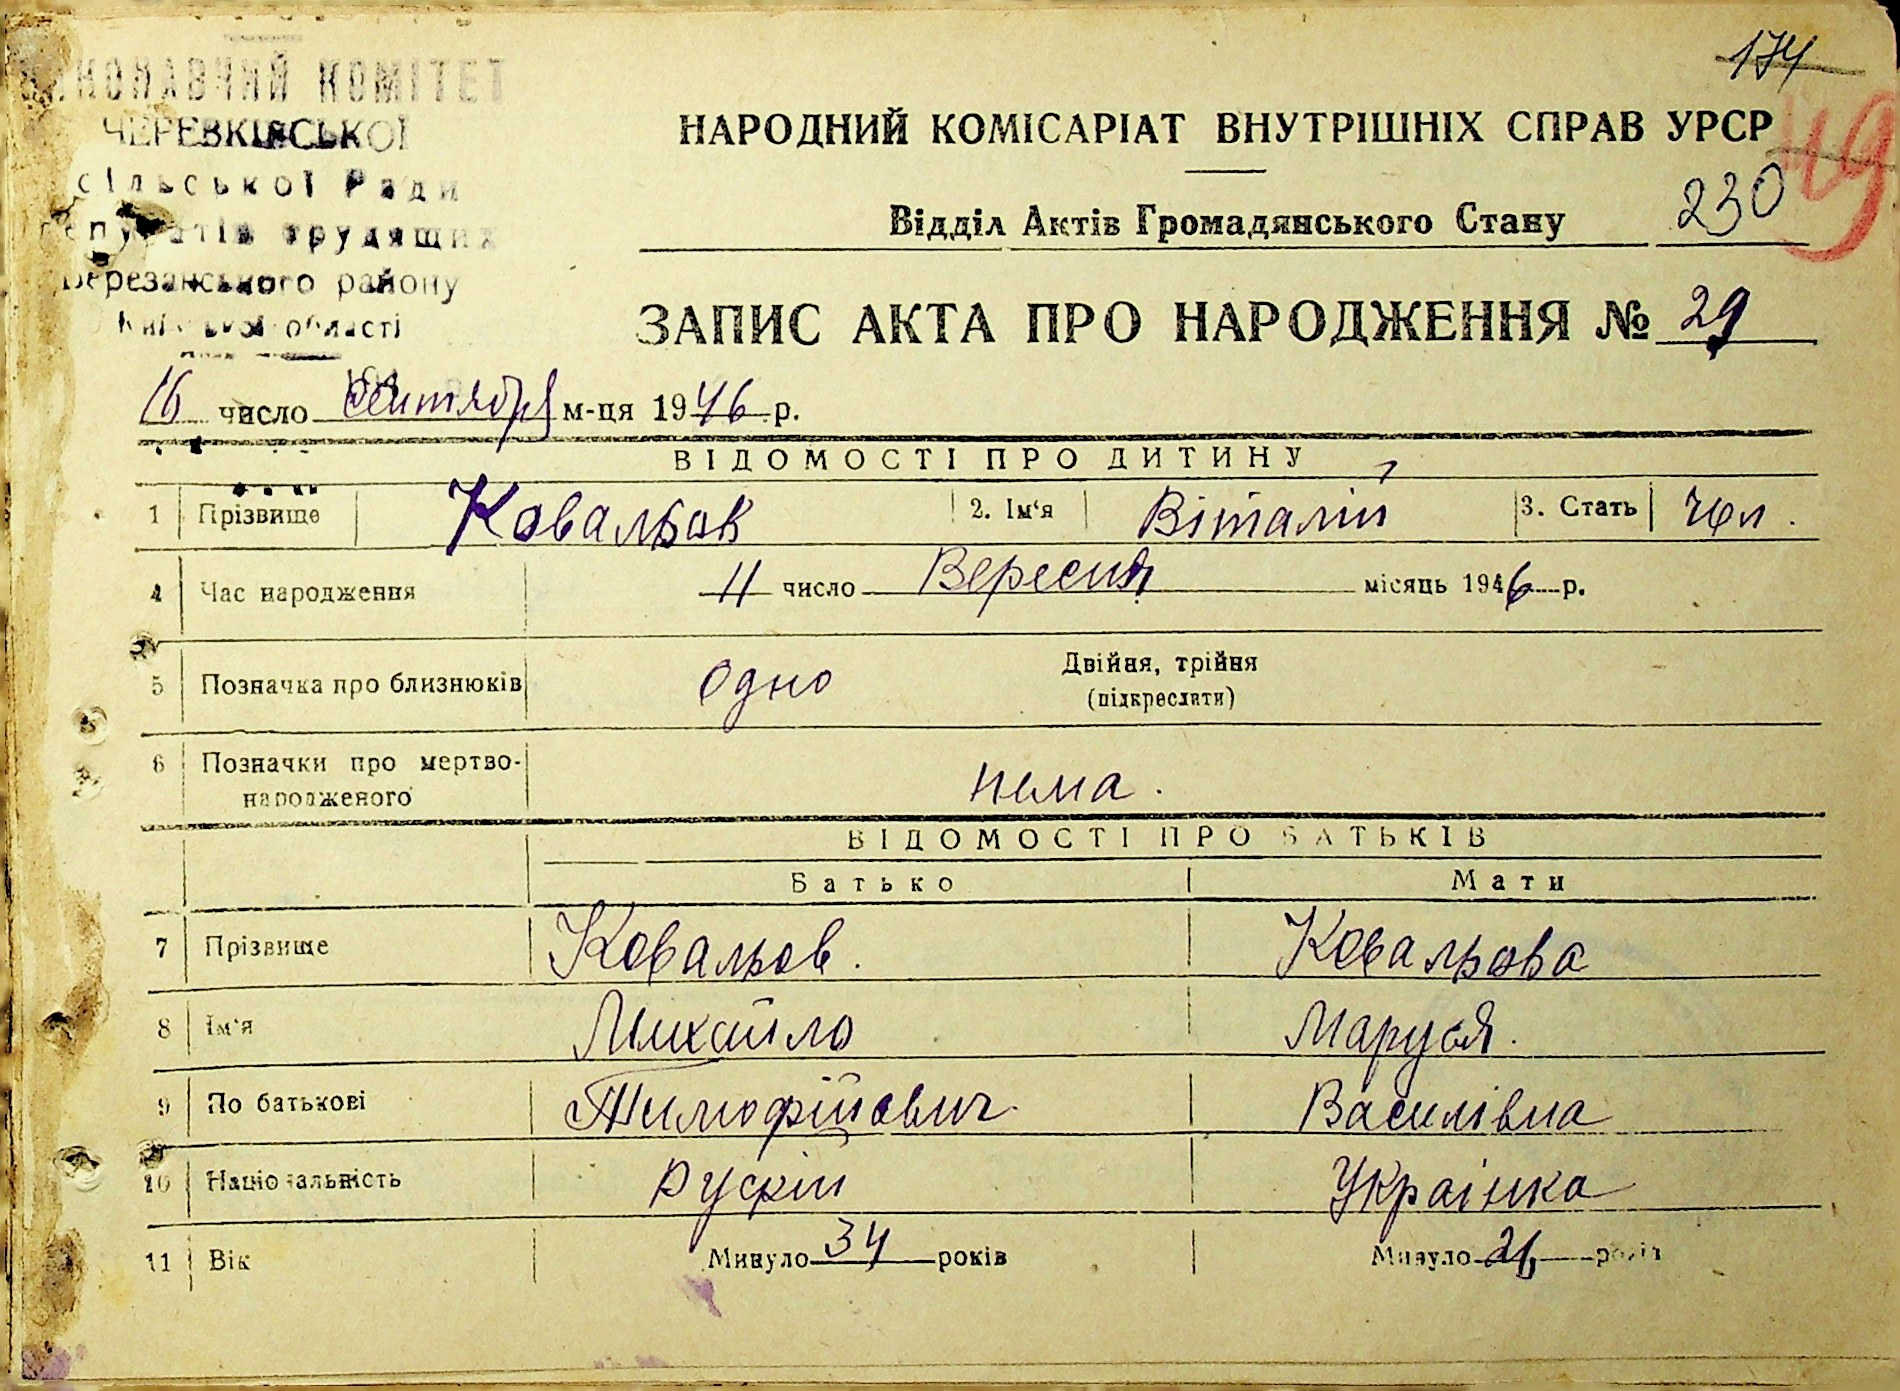 174
ВИКОНАВЧИЙ КОМІТЕТ
ЧЕРЕВКІВСЬКОЇ
сільської Ради
депутатів трудящих
Березанського району
Київської області
НАРОДНИЙ КОМІСАРІАТ ВНУТРІШНІХ СПРАВ УРСР
Відділ Актів Громадянського Стану 230
ЗАПИС АКТА ПРО НАРОДЖЕННЯ № 29
16 число сентября м-ця 1946 р.
ВІДОМОСТІ ПРО ДИТИНУ
1 Прізвище Ковальов 2. Ім‘я Віталій 3. Стать Чол.
4 Час народження 11 число Вересня місяць 1946 р.
5 Позначка про близнюків одно Двійня, трійня
(підкреслити)
6 Позначки про мертво-
народженого нема.
ВІДОМОСТІ ПРО БАТЬКІВ
Батько Мати
7 Прізвище Ковальов. Ковальова
8 Ім‘я Михайло Маруся.
9 По батькові Тимофійович Василівна
10 Національність Рускій Українка
11 Вік Минуло 34 років Минуло 26 років